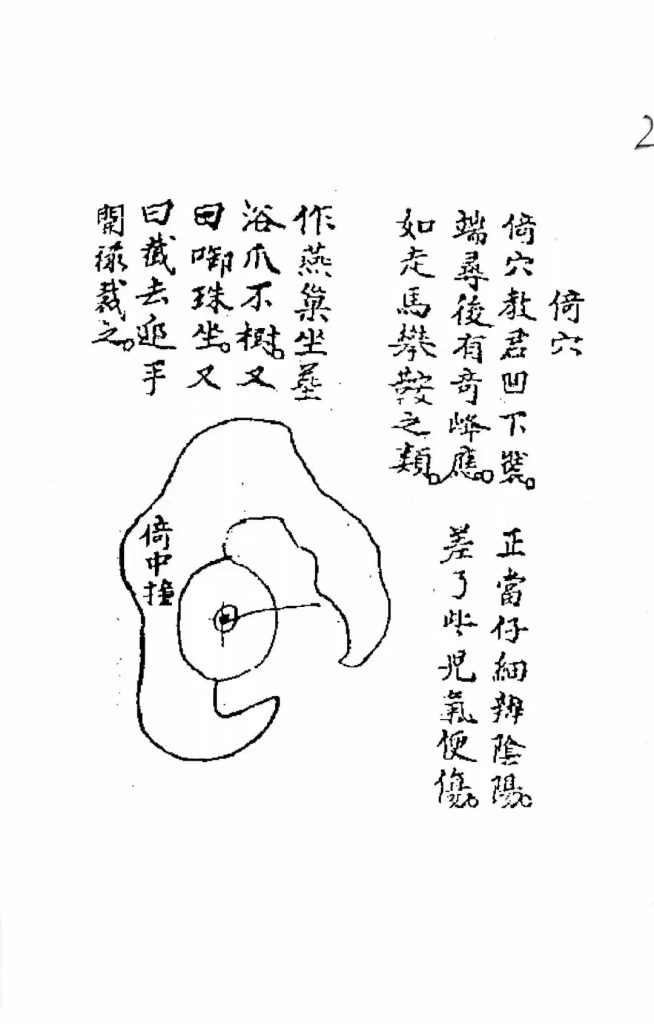 2
倚穴
倚穴教君凹下裝。 正當仔細辨陰陽。
端尋後有奇峰應。 差了些児氣便傷。
如走馬攀鞍之類。
作燕巢坐
浴爪不樹。又
曰啣珠坐。又
曰截去手
開裁之。
倚中撞